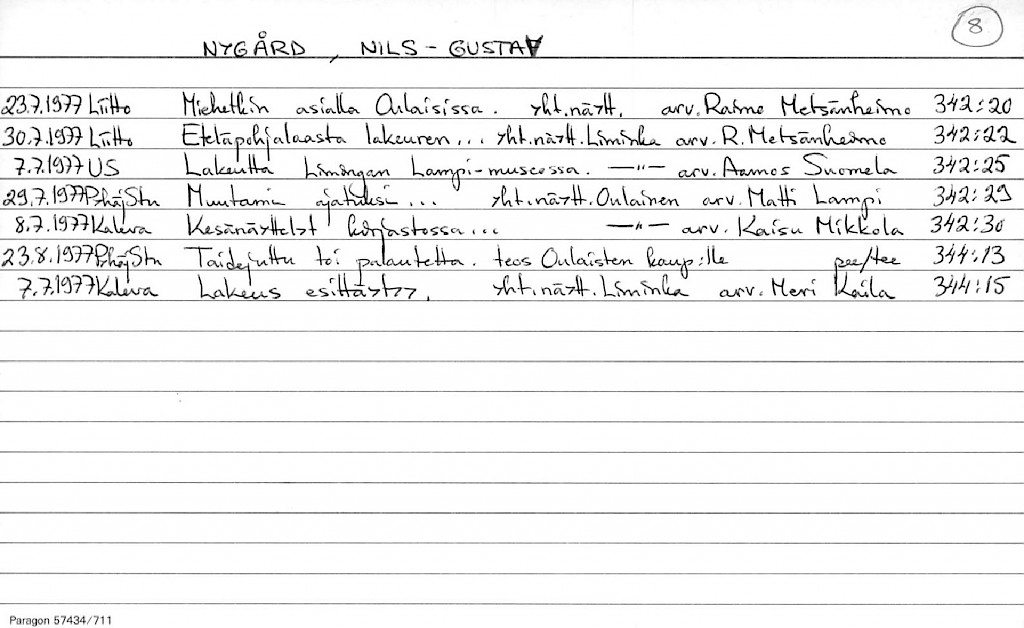 8
NYGÅRD, NILS-GUSTAV
23.7.1977 Liitto Miehetkin asialla Oulaisissa. yht.näytt. arv. Raimo Metsänheimo 342:20
30.7.1977 Liitto Eteläpohjalaasta lakeuren... yht.näytt. Liminka arv. R. Metsänheimo 342:22
7.7.1977 US Lakeutta Limingan Lampi-museossa. —"— arv. Aamos Suomela 342:25
29.7.1977 PohjStu Muutamia ajatuksi... yht.näytt. Oulainen arv. Matti Lampi 342:29
8.7.1977 Kaleva Kesänäyttelyt kirjastossa... —"— arv. Kaisu Mikkola 342:30
23.8.1977 PohjStu Taidejuttu toi palautetta. teos Oulaisten kaup:lle pee/tee 344:13
7.7.1977 Kaleva Lakeus esittäytyy. yht.näytt. Liminka arv. Meri Kaila 344:15
Paragon 57434/711